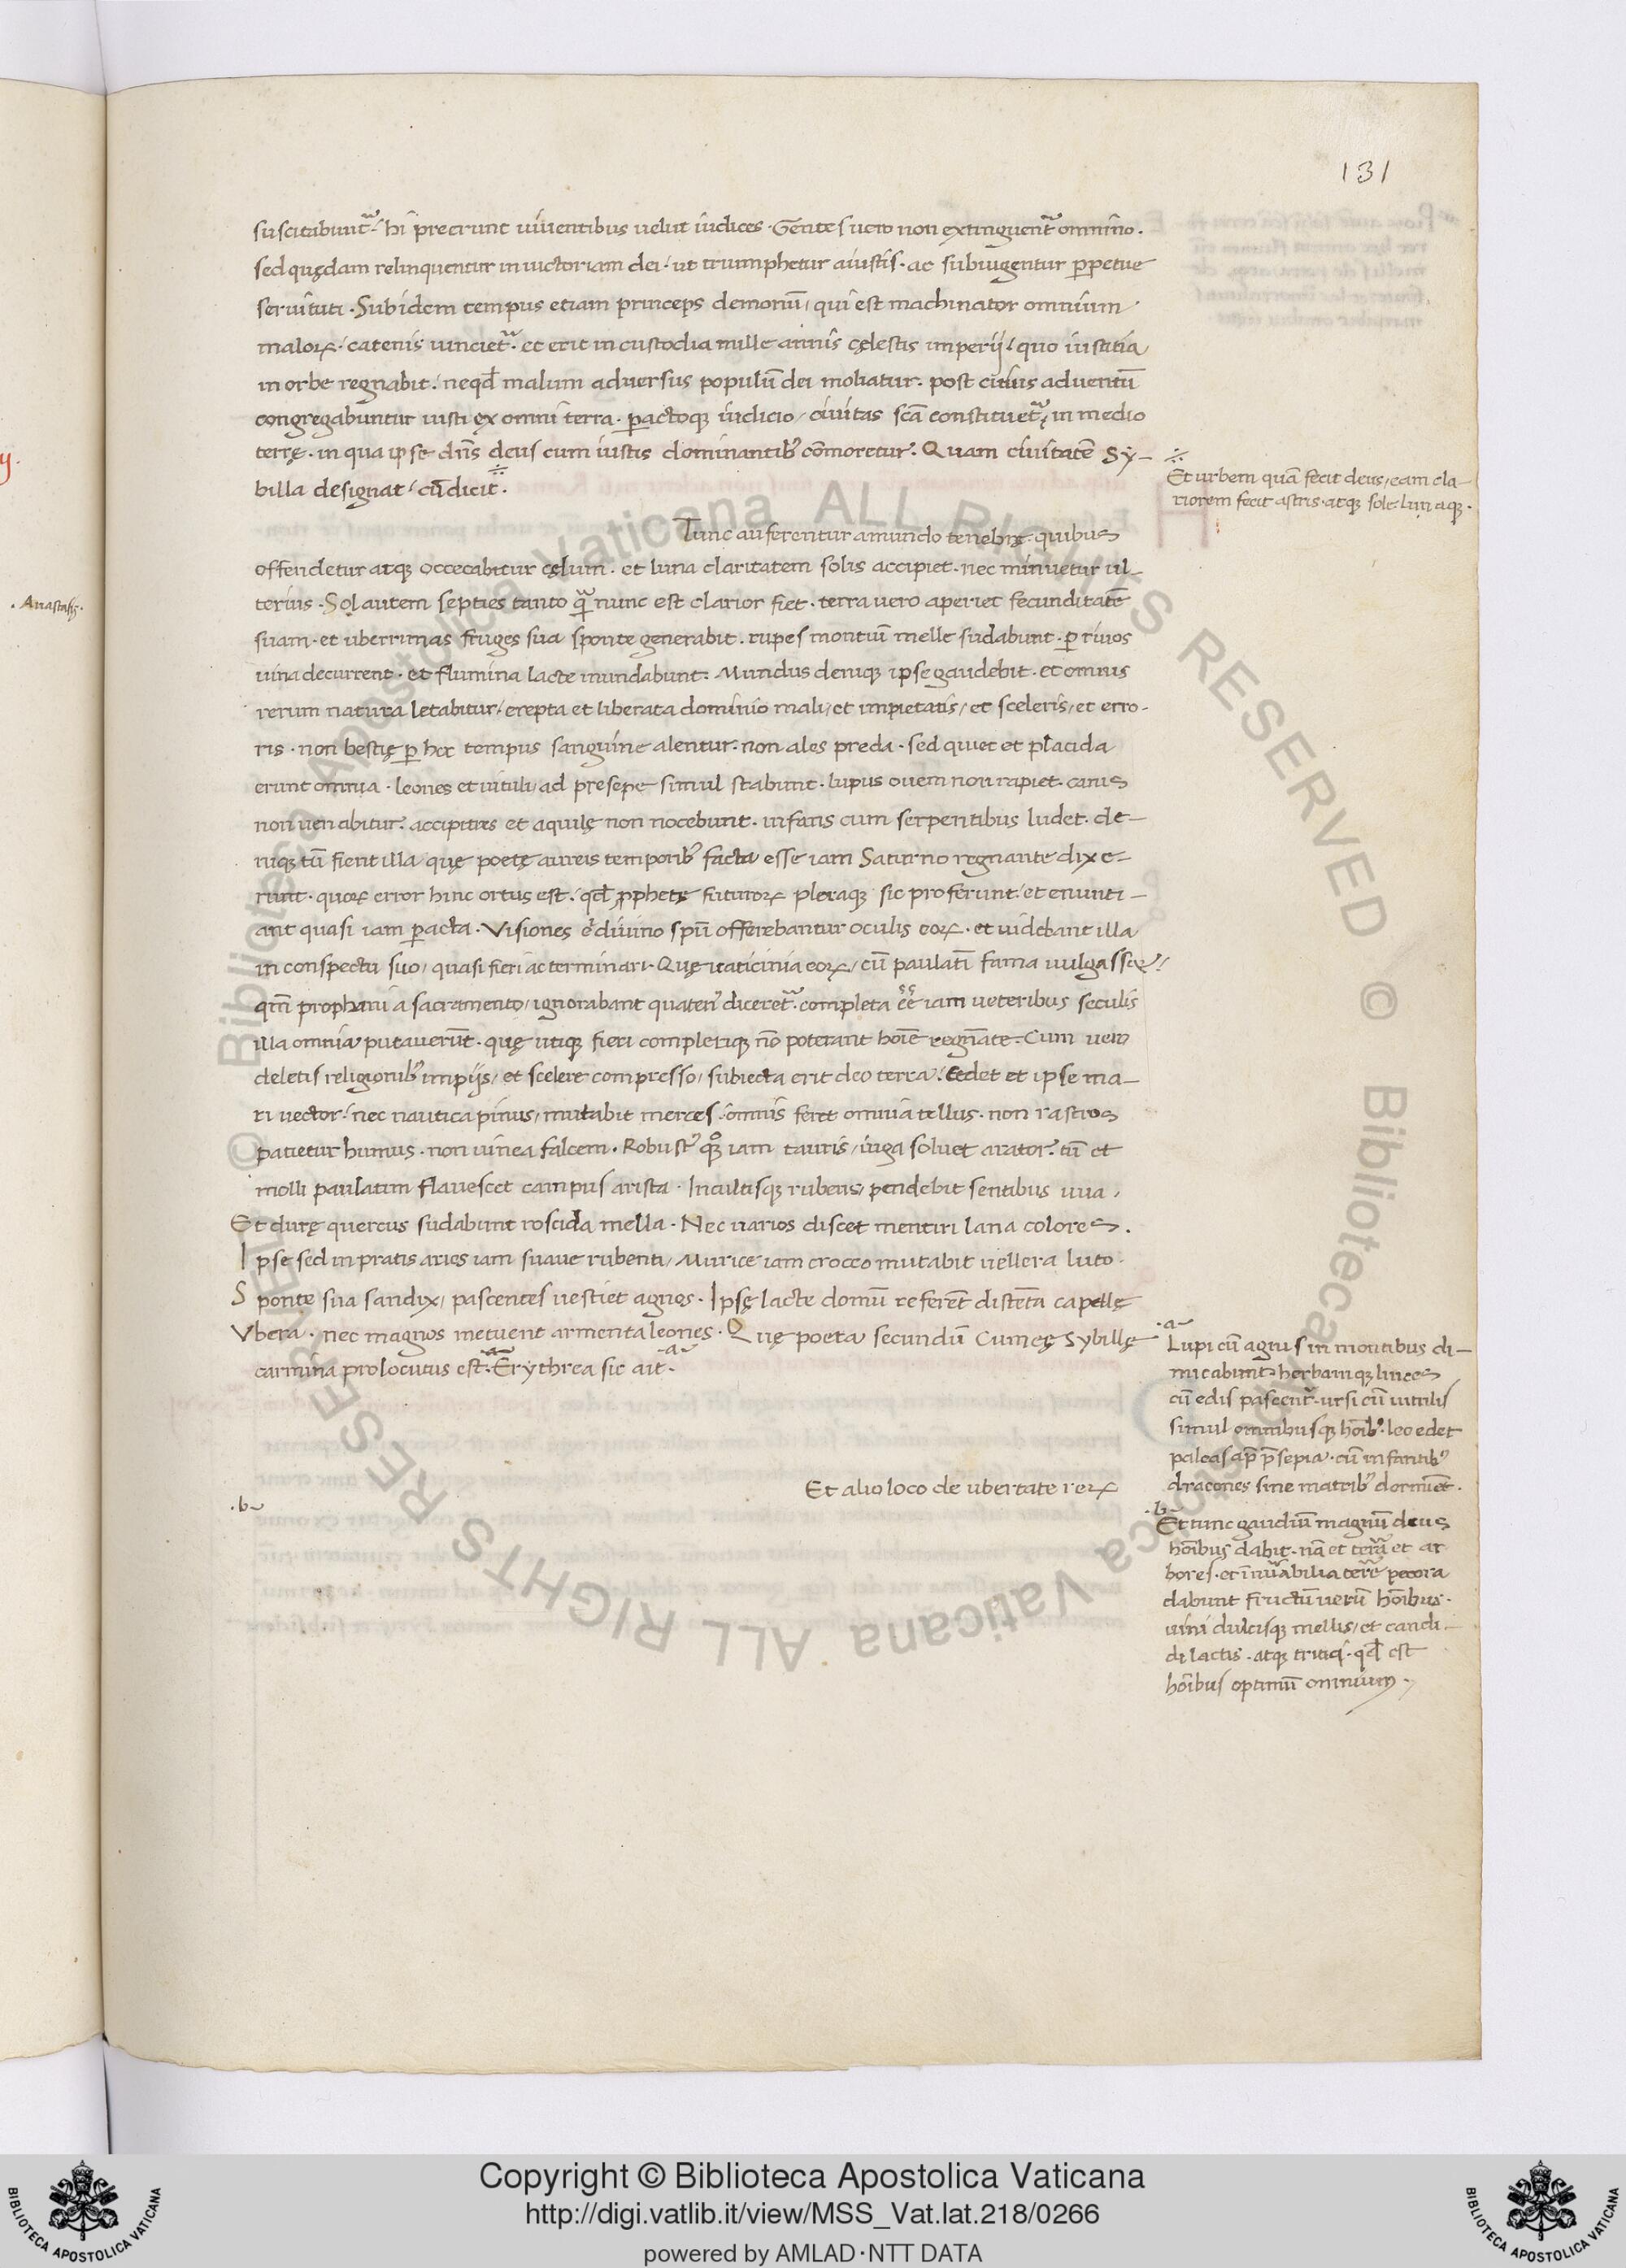 131
suscitabunt᷑. hi preerunt uiuentibus uelut iudices. Gentes uero non extinguent᷑ omnino.
sed quędam relinquentur in uictoriam dei. ut triumphetur a iustis. ac subiugentur ꝑpetue
seruituti. Sub idem tempus etiam princeps demonū, qui est machinator omnium
maloꝝ. catenis uinciet᷑. et erit in custodia mille annis cęlestis imperij. quo iustitia
in orbe regnabit. neqd̄ malum aduersus populū dei moliatur. post cuius aduentū
congregabuntur iusti ex omni terra. ꝑactoqꝫ iudicio, ciuitas sc̄a constituet᷑ in medio
terrę. in qua ipse dn̄s deus cum iustis dominantibꝰ cōmoretur. Quam ciuitatē Sy-
billa designat. cū dicit.
Et urbem quā fecit deus, eam cla-
riorem fecit astris. atqꝫ sole. lunaqꝫ.
Tunc auferentur a mundo tenebrę. quibus
offendetur atqꝫ occecabitur cęlum. et luna claritatem solis accipiet. nec minuetur ul-
terius. Sol autem septies tanto q̄ nunc est clarior fiet. terra uero aperiet fecunditatē
suam. et uberrimas fruges sua sponte generabit. rupes montiū melle sudabunt. ꝑ riuos
uina decurrent. et flumina lacte inundabunt. Mundus deniqꝫ ipse gaudebit. et omnis
rerum natura letabitur, erepta et liberata dominio mali, et impietatis, et sceleris, et erro-
ris. non bestię ꝑ hoc tempus sanguine alentur. non ales preda. sed quiet et placida
erunt omnia. leones et uituli, ad presepe simul stabunt. lupus ouem non rapiet. canis
non uenabitur. accipitres et aquilę non nocebunt. infans cum serpentibus ludet. de-
niqꝫ tū fient illa quę poetę aureis temporibꝰ facta esse iam Saturno regnante dixe-
runt. quoꝝ error hinc ortus est. qd̄ ꝓphetę futuroꝝ pleraqꝫ sic proferunt. et enunti-
ant quasi iam ꝑacta. Visiones e᷑ diuino spū offerebantur oculis eoꝝ. et uidebant illa
in conspectu suo, quasi fieri ac terminari. Quę uaticinia eoꝝ, cū paulatī fama uulgasset.
qm̄ prophani a sacramento, ignorabant quatenꝰ diceret᷑. completa ēē iam ueteribus seculis
illa omnia putauerūt. quę utiqꝫ fieri compleriqꝫ nō poterant hoīe regnāte. Cum uero
deletis religionibꝰ impijs, et scelere compresso, subiecta erit deo terra. Cedet et ipse ma-
ri uector. nec nautica pinus, mutabit merces. omnis feret omnia tellus. non rastros
patietur humus. non uinea falcem. Robustꝰ qꝫ iam tauris, iuga soluet arator. tū et
molli paulatim flauescet campus arista. Incultisqꝫ rubens, pendebit sentibus uua,
Et durę quercus sudabunt roscida mella. Nec uarios discet mentiri lana colores.
Ipse sed in pratis aries iam suaue rubenti, Murice iam croceo mutabit uellera luto.
Sponte sua sandix, pascentes uestiet agnos. Ipsę lacte domū referēt distēta capellę
Vbera. nec magnos metuent armenta leones. Quę poeta secundū Cumeę Sybillę
carmina prolocutus est. Erythrea sic ait.
.a.
Lupi cū agnis in montibus di-
micabunt. herbamqꝫ linces
cū edis pascent᷑. ursi cū uitulis
simul omnibusqꝫ hoībꝰ. leo edet
paleas ap̄ p̄sepia. cū infantibꝰ
dracones sine matribꝰ dormiēt.
Et alio loco de ubertate reꝝ
.b.
.b.
Et tunc gaudiū magnū deus
hoībus dabit. nā et terra et ar
bores. et inūabilia terre pecora
dabunt fructū uerū hoībus.
uini dulcisqꝫ mellis, et candi-
di lactis. atqꝫ tritici. qd̄ est
hoībus optimū omnium.
.Anastasis.
Copyright © Biblioteca Apostolica Vaticana
http://digi.vatlib.it/view/MSS_Vat.lat.218/0266
powered by AMLAD·NTT DATA
BIBLIOTECA APOSTOLICA VATICANA
BIBLIOTECA APOSTOLICA VATICANA
© Biblioteca Apostolica Vaticana ALL RIGHTS RESERVED
© Biblioteca Apostolica Vaticana ALL RIGHTS RESERVED